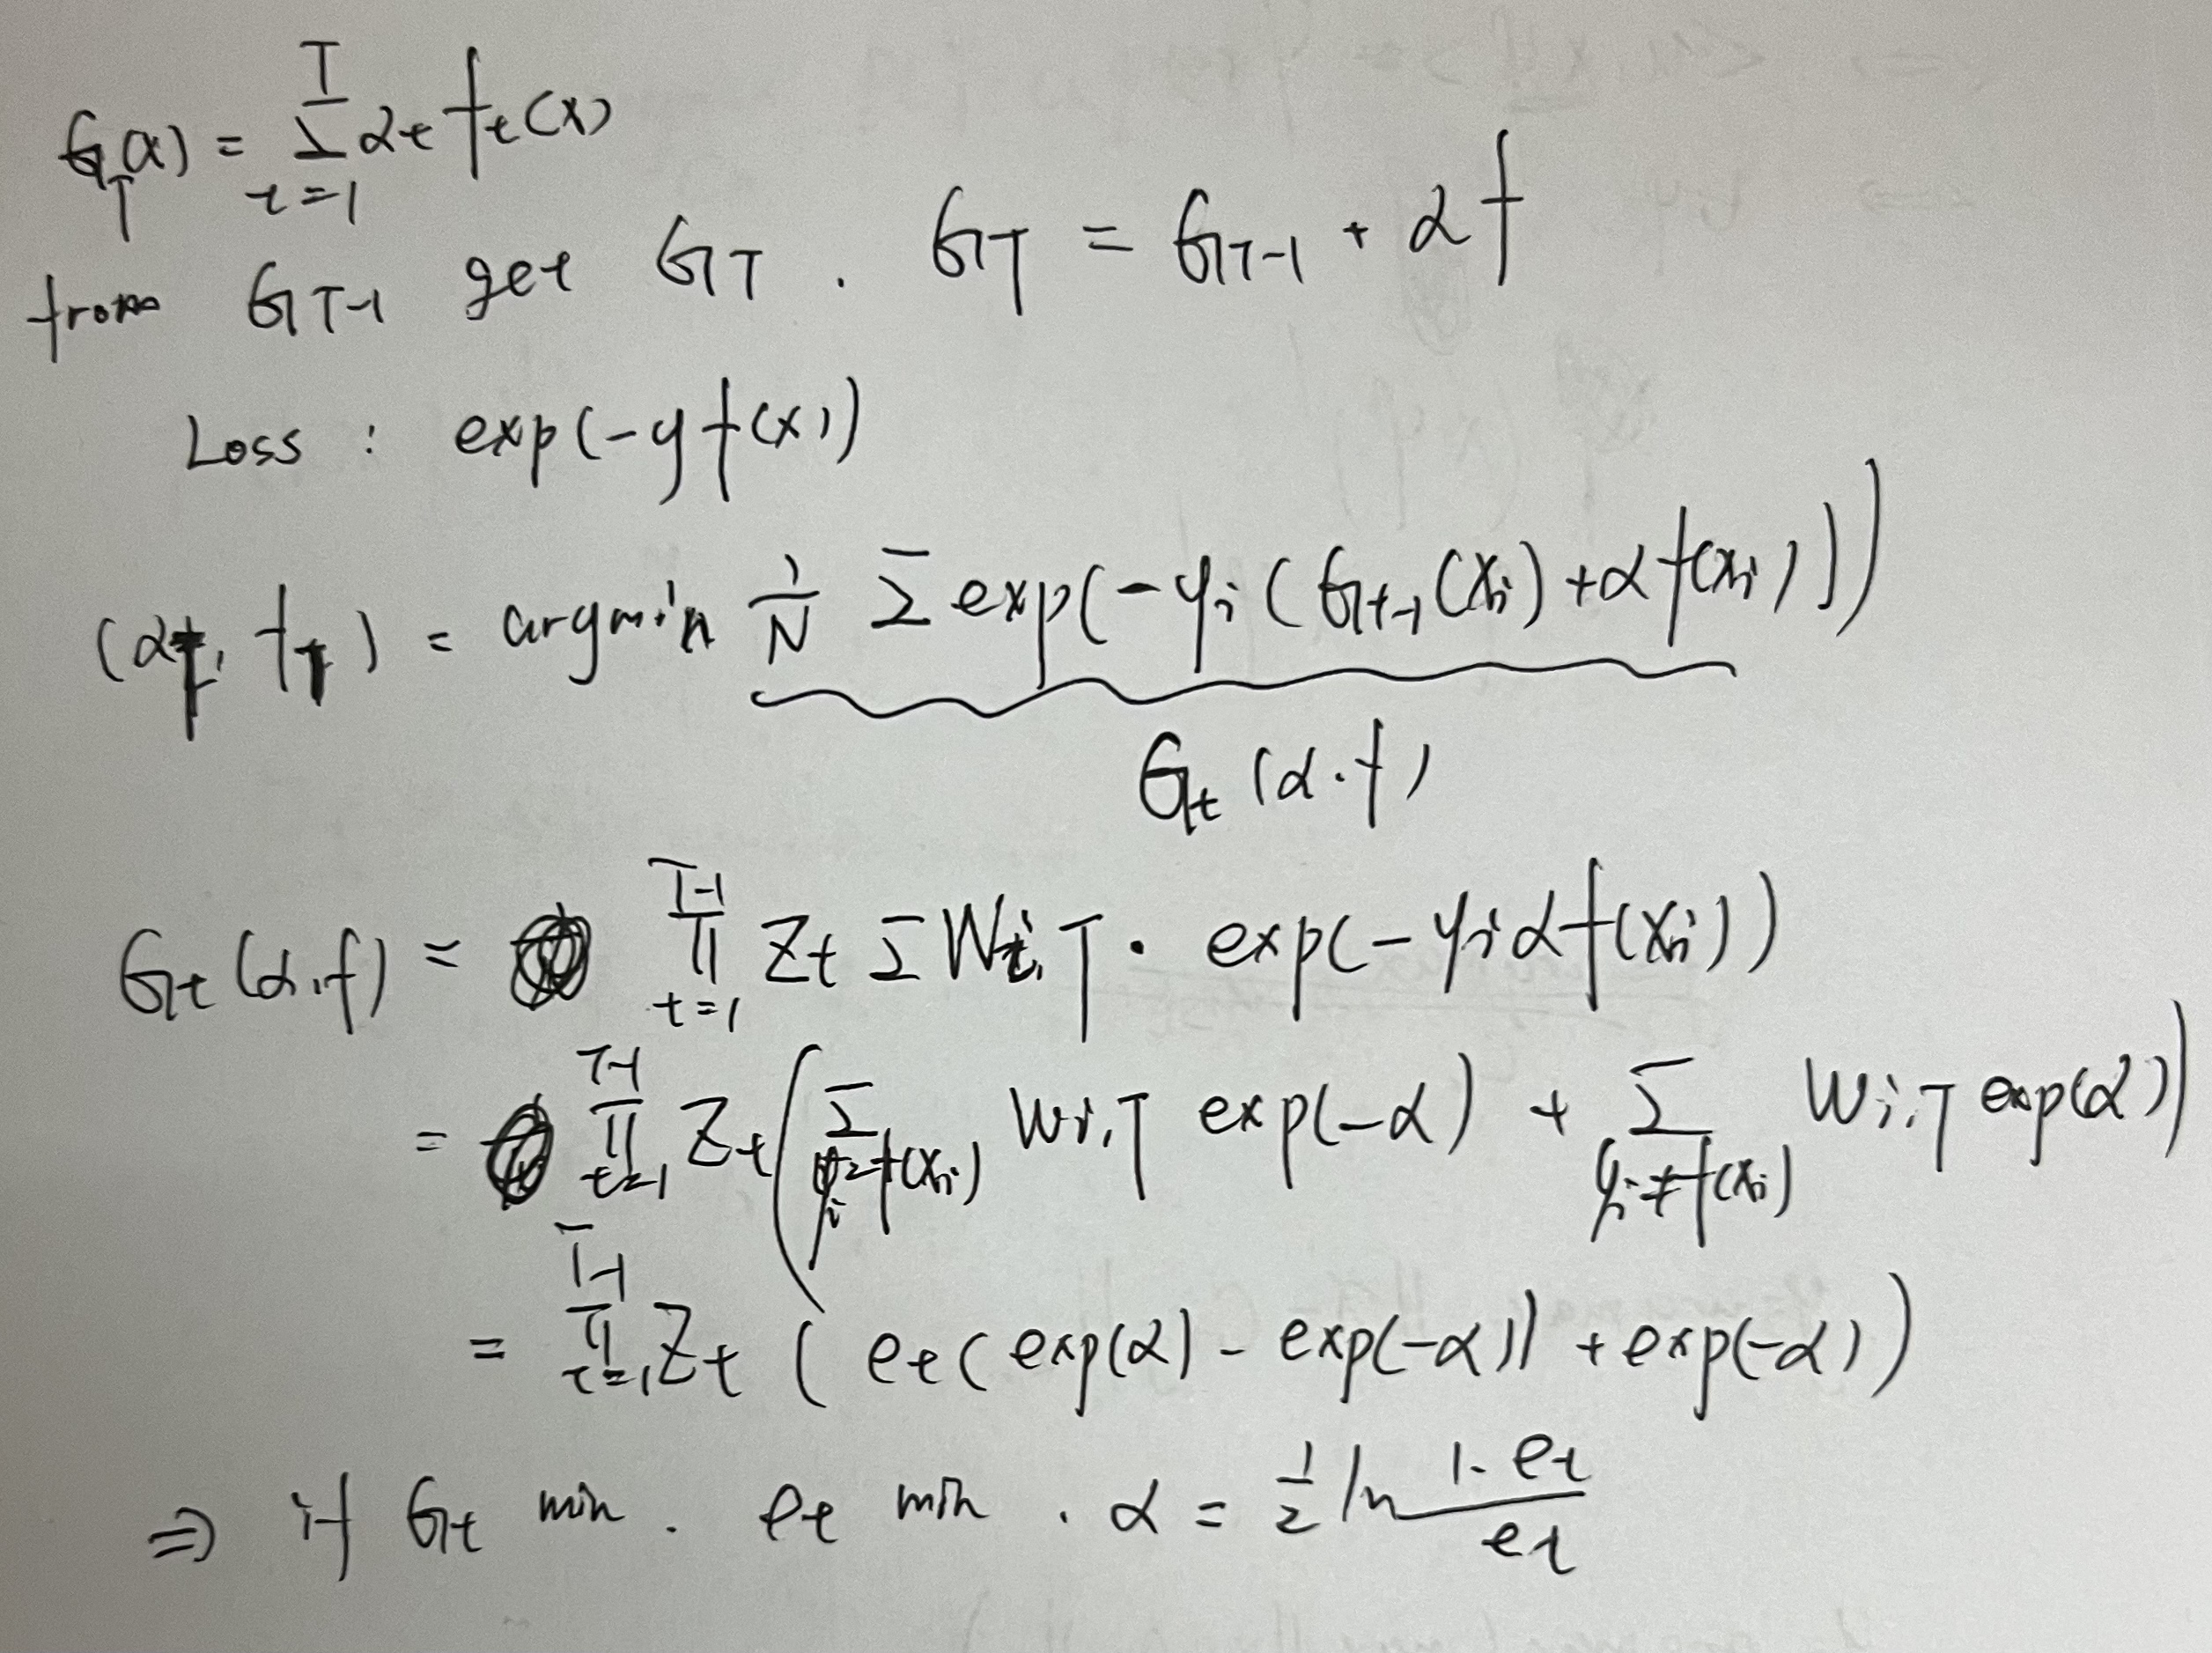 G_T(x) = Σ_{t=1}^{T} α_t f_t(x)
from G_{T-1} get G_T . G_T = G_{T-1} + α f
Loss : exp(-y f(x))
(α_T, f_T) = argmin 1/N Σ exp(-y_i (G_{t-1}(x_i) + α f(x_i)))
G_t (α.f)
G_t (α.f) = ∏_{t=1}^{T-1} Z_t Σ W_{i,T} · exp(-y_i α f(x_i))
= ∏_{t=1}^{T-1} Z_t ( Σ_{y_i=f(x_i)} W_{i,T} exp(-α) + Σ_{y_i≠f(x_i)} W_{i,T} exp(α) )
= ∏_{t=1}^{T-1} Z_t ( e_t ( exp(α) - exp(-α)) + exp(-α) )
⇒ if G_t min . e_t min . α = 1/2 ln (1-e_t)/e_t